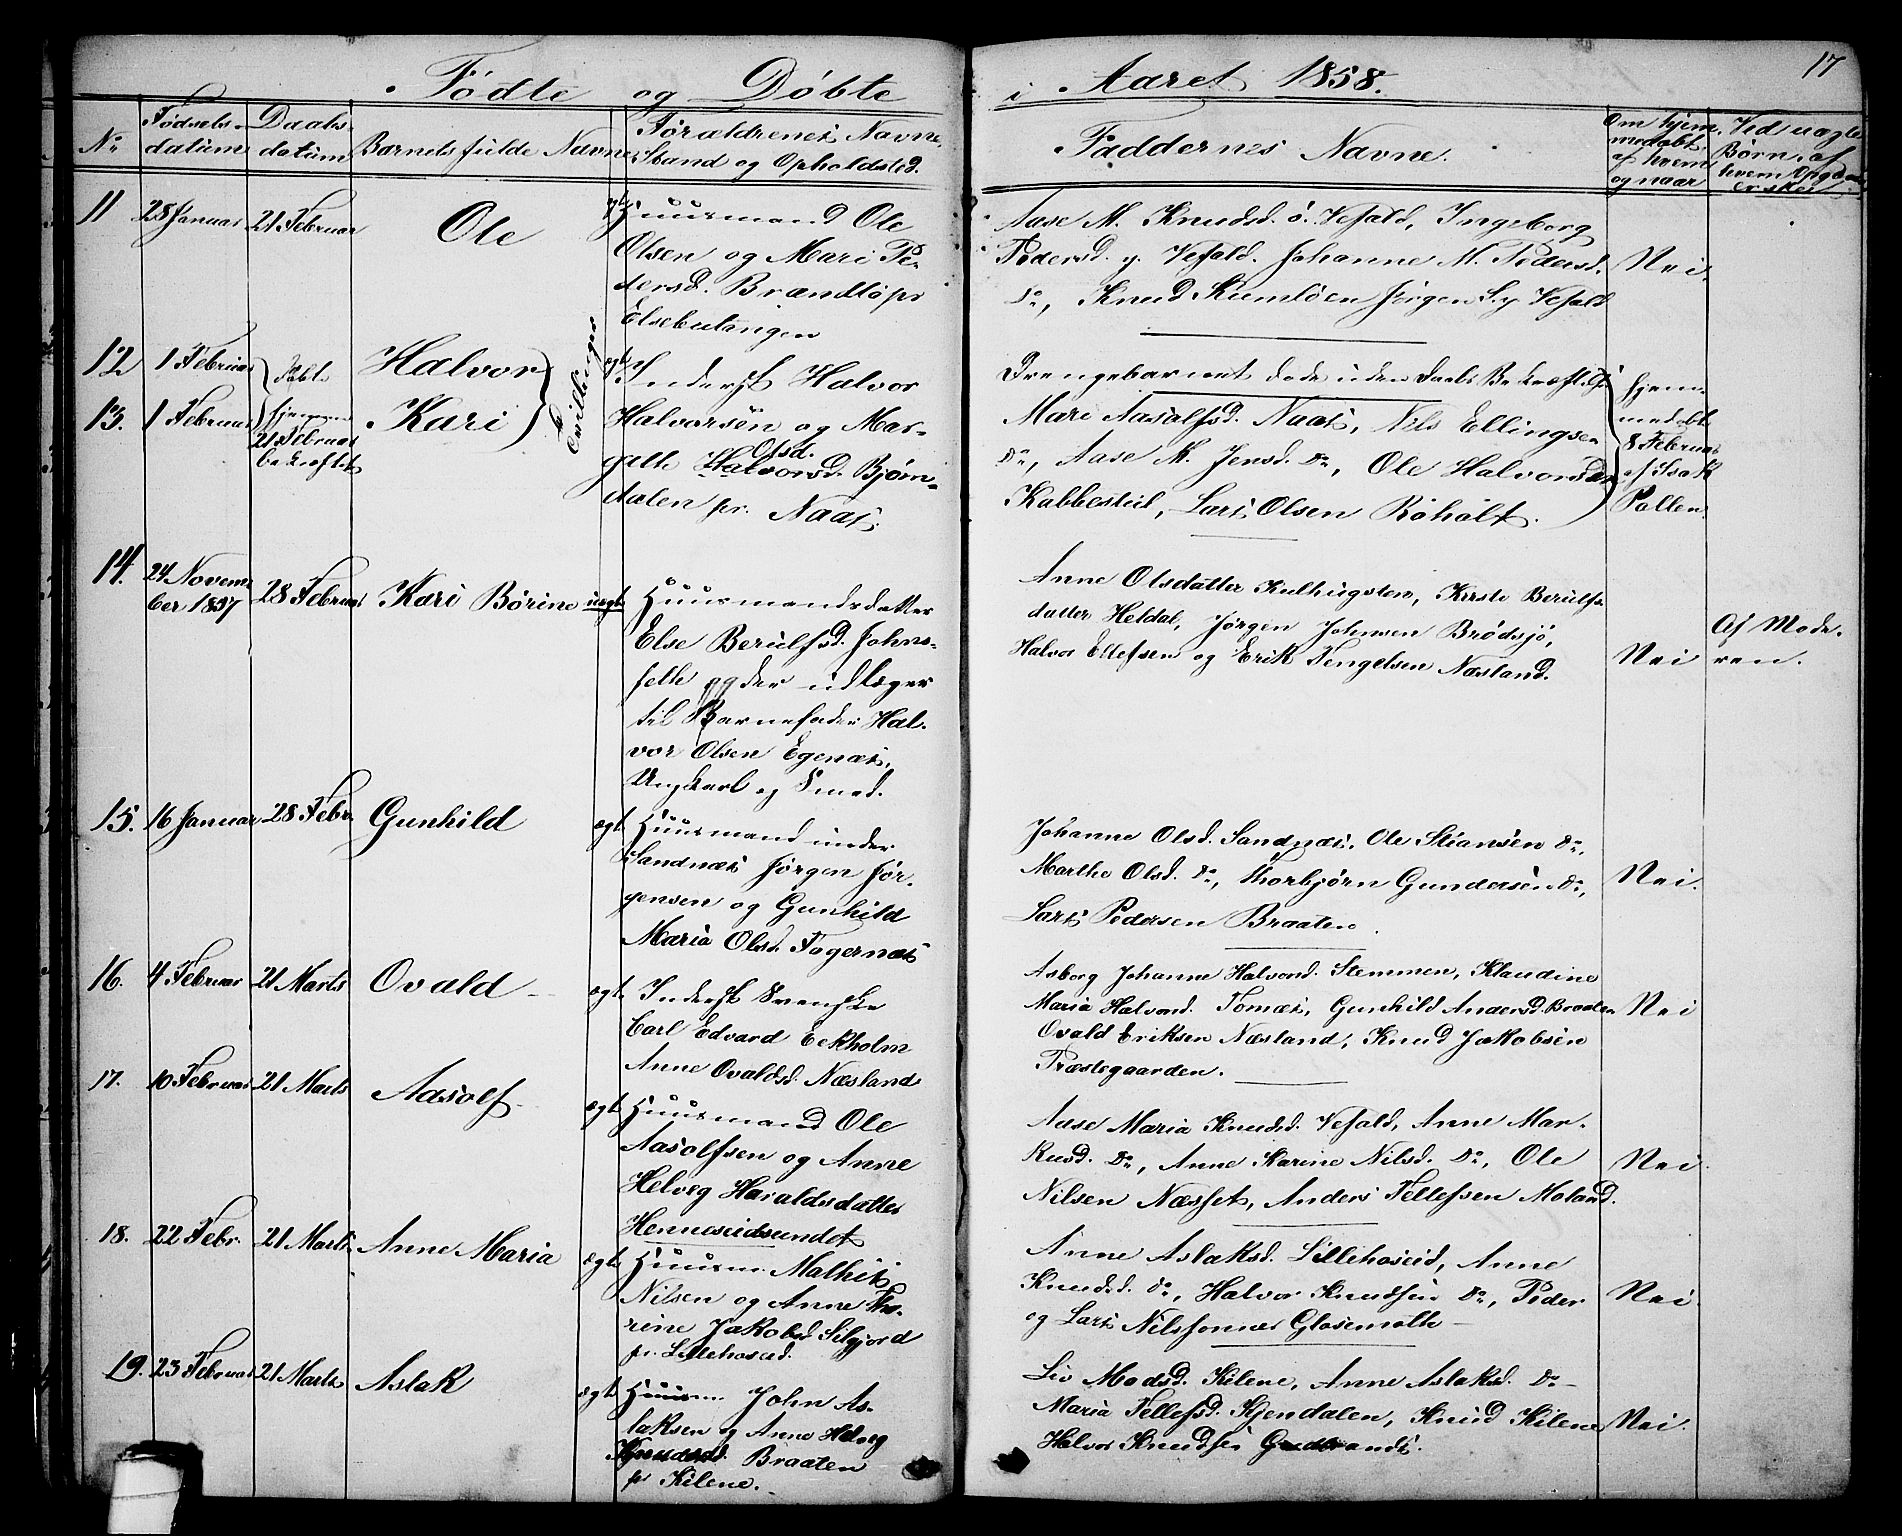 Fødte og Døbte i Aaret 1858.
17
No
Fødsels-
datum
Daabs-
datum
Barnets fulde Navne
Forældrenes Navne,
Stand og Opholdsted.
Faddernes Navne.
Om hjem-
medøbt,
af hvem
og naar
Ved uægte
Børn, af
hvem Opgaven
er skeet
11 28 Januar 21 Februar Ole ægt
Huusmand Ole
Olsen og Mari Pe-
dersd. Brændtø pr
Elsebutangen
Aase M. Knudsd. ø. Vefald, Ingeborg
Pedersd. y. Vefald. Johanne M. Pedersd.
do, Knud Kumløen Jørgen S. y Vefald
Nei.
12 1 Februar Halvor
13. 1 Februar Kari
Døbt
hjemme
21 Februar
bekræftet
Tvillinger
ægt
Inderst Halvor
Halvorsen og Mar-
gith Halvorsd. Olsd. Bjørn-
dalen pr. Naas.
Drengebarnet døde uden Daabs Bekræftelse
Mari Aasolfsd. Naas, Nils Ellingsen
do, Aase M. Jensd. do, Ole Halvorsen
Kabbestul, Lars Olsen Røholt.
hjem-
medøbt
8 Februar
af Isak
Pollen.
14. 24 Novem-
ber 1857 28 Februar Kari Børine uægt
Huusmandsdatter
Else Berulfsd. Johns-
feth og der udlæger
til Barnefader Hal-
vor Olsen Egenæs,
Ungkarl og Smed.
Anne Olsdatter Kulhugsten, Kirste Berulfs-
datter Heldal, Jørgen Johnsen Brødsjø,
Halvor Ellefsen og Erik Tengelsen Næsland.
Nei
Af Mode-
ren.
15. 16 Januar 28 Febr. Gunhild ægt
Huusmand under
Sandnæs Jørgen Jør-
gensen og Gunhild
Maria Olsd. Fagernæs
Johanne Olsd. Sandnæs, Ole Stiansen do,
Marthe Olsd. do, Thorbjørn Gundersen do,
Lars Pedersen Braaten.
Nei.
16. 4 Februar 21 Marts Ovald ægt
Inderst Svenske
Carl Edvard Eekholm
Anne Ovaldsd. Næsland
Asborg Johanne Halvorsd. Stemmen, Klaudine
Maria Halvorsd. Tomæs, Gunhild Andersd. Braaten
Ovald Eriksen Næsland, Knud Jakobsen
Præstegaarden.
Nei
17. 10 Februar 21 Marts Aasolf ægt
Huusmand Ole
Aasolfsen og Anne
Helveg Haraldsdatter
Henneseidsundet
Aase Maria Knudsd. Vefald, Anne Mar-
kusd. do, Anne Karine Nilsd. do, Ole
Nilsen Næsset, Anders Tellefsen Moland.
Nei.
18. 22 Febr. 21 Marts Anne Maria ægt
Huusm. Mathis
Nilsen og Anne Tho-
rine Jakobsd Selgjord
pr. Lillehoseid.
Anne Aslaksd. Lillehoseid, Anne
Knudsd. do, Halvor Knudsen do, Peder
og Lars Nilssønner Glosemoth
Nei.
19. 23 Februar 21 Marts Aslak ægt
Huusm John As-
laksen og Anne Helveg
Knudsd. Braaten
pr Kilene.
Liv Madsd. Kilene, Anne Aslaksd. do
Maria Tellefsd. Kjendalen, Knud Kilene
Halvor Knudsen Gudbrands.
Nei.